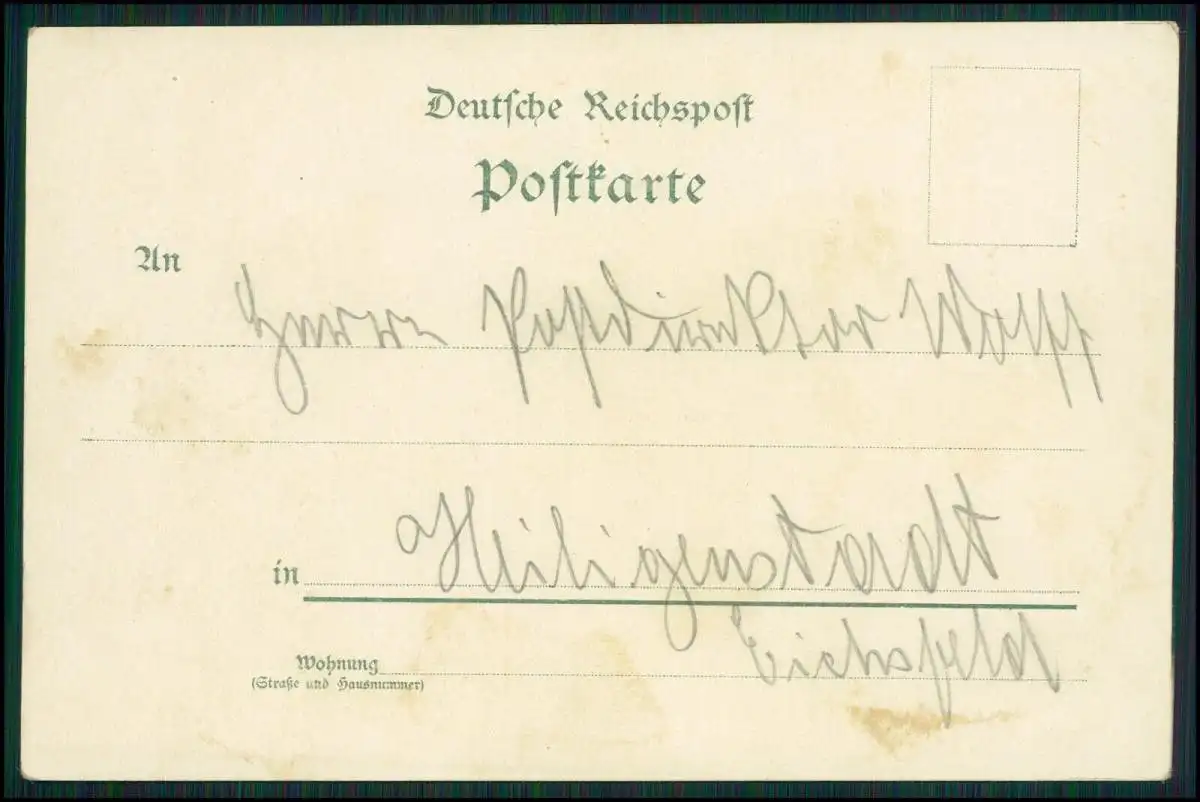 Deutsche Reichspost
Postkarte
An
Herrn Postdirektor Wolff
in Heiligenstadt
Eichsfeld
Wohnung
(Straße und Hausnummer)